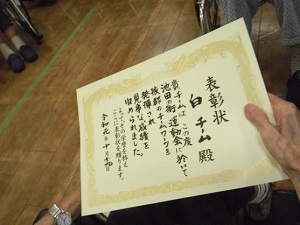 表彰状
白チーム殿
貴チームは、この度
池田の街運動会に於いて
抜群のチームワークを
発揮され
見事な成績を
収められました。
よって、その栄誉を称え
ここに表彰状を贈ります。
令和元年十月十九日